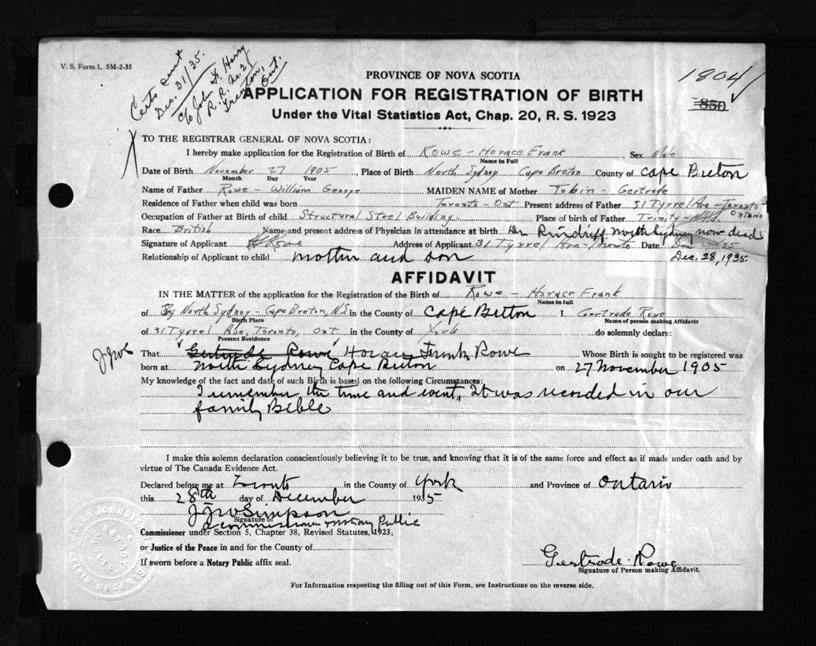 V. S. Form 1. 5M-2-35
Certs sent
Dec. 31/35.
c/o John F.
R.R. No. 2
Trenton,
Ont.
1904
850
PROVINCE OF NOVA SCOTIA
APPLICATION FOR REGISTRATION OF BIRTH
Under the Vital Statistics Act, Chap. 20, R. S. 1923
X TO THE REGISTRAR GENERAL OF NOVA SCOTIA:
I hereby make application for the Registration of Birth of Rowe - Horace Frank Sex Male
Name in Full
Date of Birth November 27 1905 Place of Birth North Sydney Cape Breton County of Cape Breton
Month Day Year
Name of Father Rowe - William George MAIDEN NAME of Mother Tobin - Gertrude
Residence of Father when child was born Toronto - Ont Present address of Father 31 Tyrrel Ave - Toronto Ontario
Occupation of Father at Birth of child Structural Steel Building Place of birth of Father Trinity - Nfld
Race British Name and present address of Physician in attendance at birth Dr North Sydney now dead
Signature of Applicant H Rowe Address of Applicant 31 Tyrrel Ave - Toronto Date
Relationship of Applicant to child mother and son Dec. 28, 1935
AFFIDAVIT
IN THE MATTER of the application for the Registration of the Birth of Rowe - Horace Frank
Name in full
of North Sydney - Cape Breton, N.S. in the County of Cape Breton I, Gertrude Rowe
Birth Place Name of person making Affidavit
of 31 Tyrrel Ave, Toronto, Ont in the County of York do solemnly declare:
Present Residence
JJWS That Gertrude Rowe Horace Frank Rowe Whose Birth is sought to be registered was
born at North Sydney Cape Breton on 27 November 1905
My knowledge of the fact and date of such Birth is based on the following Circumstances:
I remember the time and event, It was recorded in our
family Bible
I make this solemn declaration conscientiously believing it to be true, and knowing that it is of the same force and effect as if made under oath and by
virtue of The Canada Evidence Act.
Declared before me at Toronto in the County of York and Province of Ontario
this 28th day of December 1935
JJWSimpson
Signature of
a commissioner notary Public
Commissioner under Section 5, Chapter 38, Revised Statutes, 1923,
or Justice of the Peace in and for the County of
If sworn before a Notary Public affix seal.
Gertrude Rowe
Signature of Person making Affidavit.
For Information respecting the filling out of this Form, see Instructions on the reverse side.